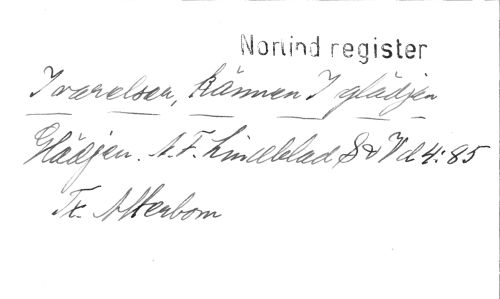 Norlind register
I varelser, kännen I glädjen
Glädjen. A.F. Lindblad S&V d 4: 85
Tx. Atterbom